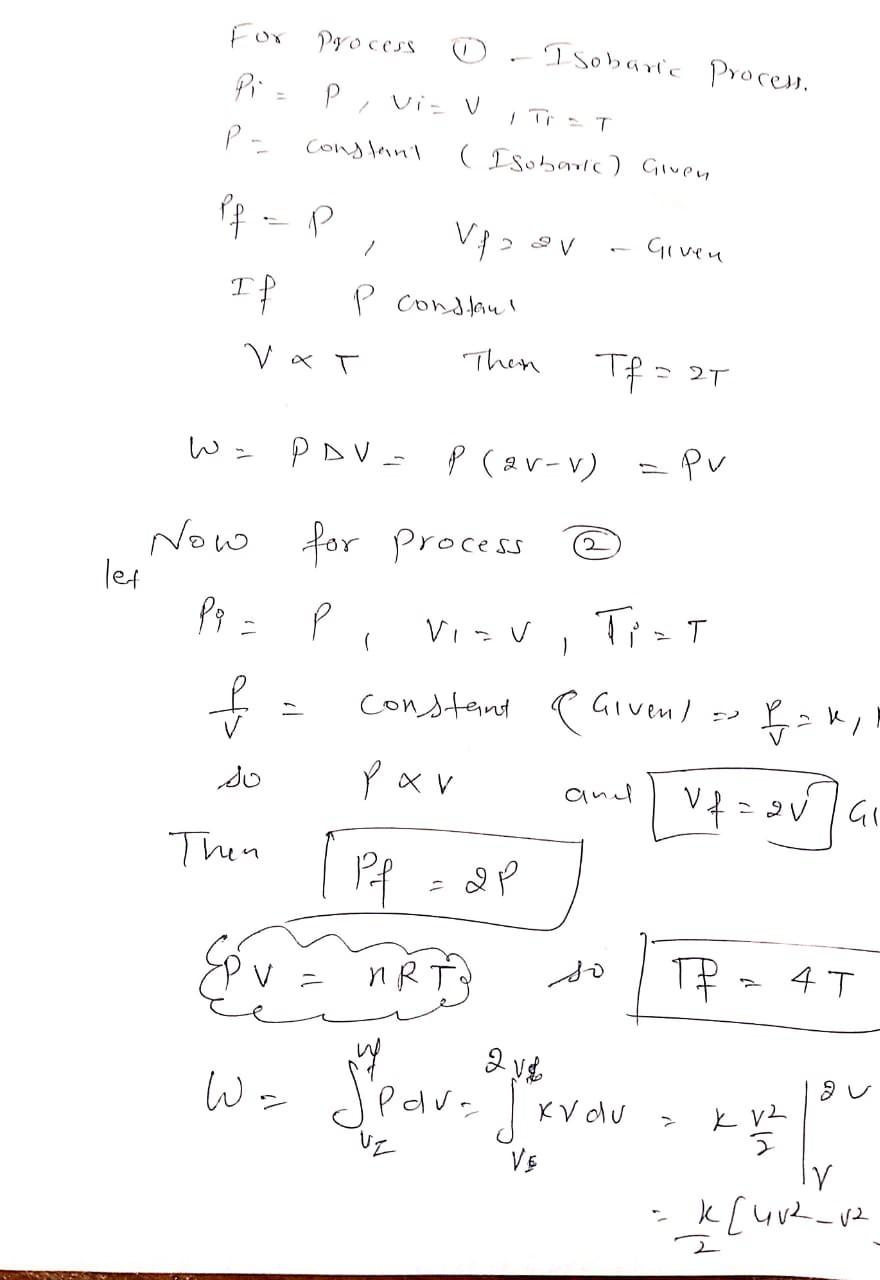 For Process ① - Isobaric Process.
Pi = P, Vi = V, Ti = T
P = constant (Isobaric) Given
Pf = P, Vf = 2V - Given
If P constant
V ∝ T Then Tf = 2T
W = PΔV = P(2V-V) = PV
Now for process ②
let
Pi = P, Vi = V, Ti = T
P/V = constant (Given) => P/V = K,
so P ∝ V and Vf = 2V
Then Pf = 2P
{PV = nRT} so Tf = 4T
W = ∫ Pdv = ∫ KVdv = K V²/2 |
= K/2 [4V² - V²